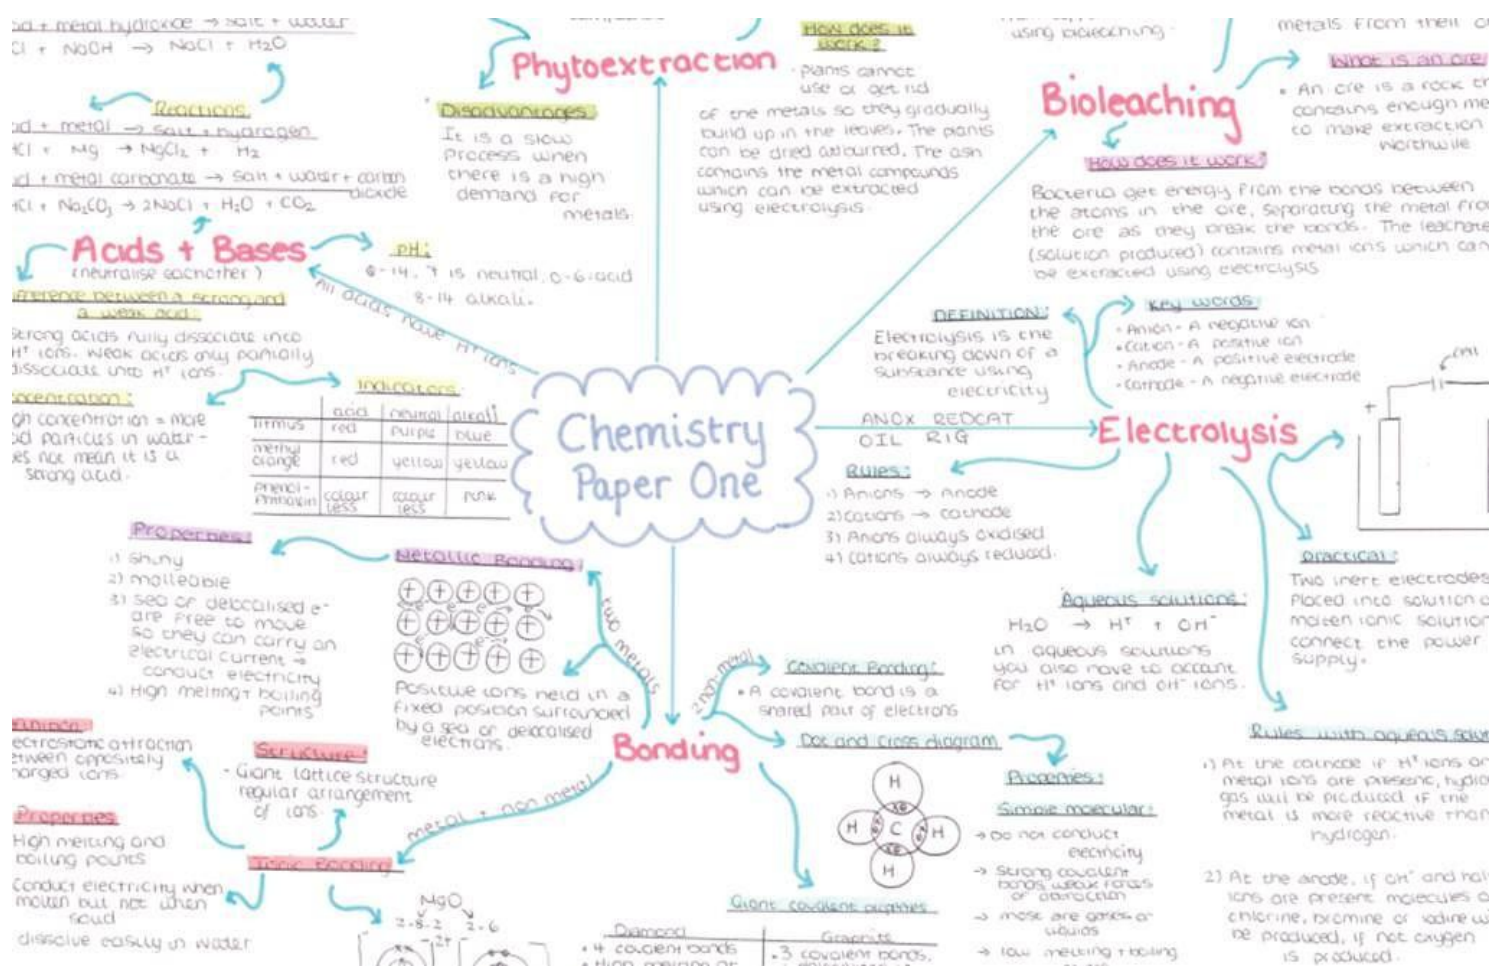 + metal hydroxide → salt + water
+ NaOH → NaCl + H2O
Reactions
+ metal → salt + hydrogen
+ Mg → MgCl2 + H2
+ metal carbonate → salt + water + carbon
dioxide
+ Na2CO3 → 2NaCl + H2O + CO2
Acids + Bases
(neutralise eachother)
pH:
0-14, 7 is neutral, 0-6-acid
8-14 alkali.
all acids have H+ ions
between a strong and
a weak acid:
strong acids fully dissociate into
H+ ions. Weak acids only partially
dissociate into H+ ions.
concentration = more
particles in water -
not mean it is a
strong acid.
Indicators:
acid neutral alkali
litmus red purple blue
methyl
orange red yellow yellow
phenol-
phthalein colour
less colour
less pink
Phytoextraction
Disadvantages
It is a slow
process when
there is a high
demand for
metals.
How does it
work?
· plants cannot
use or get rid
of the metals so they gradually
build up in the leaves. The plants
can be dried and burred. The ash
contains the metal compounds
which can be extracted
using electrolysis.
using bioleaching.
metals from their
Bioleaching
What is an ore
• An ore is a rock
containing enough
to make extraction
worthwile
How does it work?
Bacteria get energy from the bonds between
the atoms in the ore, separating the metal from
the ore as they break the bonds. The leachate
(solution produced) contains metal ions which can
be extracted using electrolysis
Chemistry
Paper One
DEFINITION:
Electrolysis is the
breaking down of a
substance using
electricity
Key words
• Anion - A negative ion
• Cation - A positive ion
• Anode - A positive electrode
• Cathode - A negative electrode
ANOX REDCAT
OIL RIG
Electrolysis
+
Rules:
1) Anions → Anode
2) Cations → cathode
3) Anions always oxidised
4) Cations always reduced.
Aqueous solutions:
H2O → H+ + OH-
in aqueous solutions
you also have to account
for H+ ions and OH- ions.
practical:
Two inert electrodes
Placed into solution
molten ionic solution
connect the power
supply.
Rules with aqueous
1) At the cathode if H+ ions
metal ions are present,
gas will be produced if the
metal is more reactive than
hydrogen.
2) At the anode, if OH- and
ions are present molecules
chlorine, bromine or iodine
be produced, if not oxygen
is produced.
Properties:
1) shiny
2) malleable
3) sea of delocalised e-
are free to move
so they can carry an
electrical current →
conduct electricity
4) High melting + boiling
points
Metallic Bonding:
+ + + + +
+ + + + +
+ + + + +
Positive ions held in a
fixed position surrounded
by a sea of delocalised
electrons.
two metals
Bonding
2 non-metal
Covalent Bonding:
• A covalent bond is a
shared pair of electrons
Dot and cross diagram
H
H C H
H
Properties:
Simple molecular:
→ Do not conduct
electricity
→ Strong covalent
bonds weak forces
of attraction
→ most are gases or
liquids
→ low melting + boiling
Giant covalent
Diamond Graphite
• 4 covalent bonds • 3 covalent bonds,
metal + non metal
Ionic Bonding
electrostatic attraction
between oppositely
charged ions.
Structure:
- Giant lattice structure
regular arrangement
of ions.
Properties
High melting and
boiling points
Conduct electricity when
molten but not when
solid
dissolve easily in water
MgO
2-8-2 2-6
2+